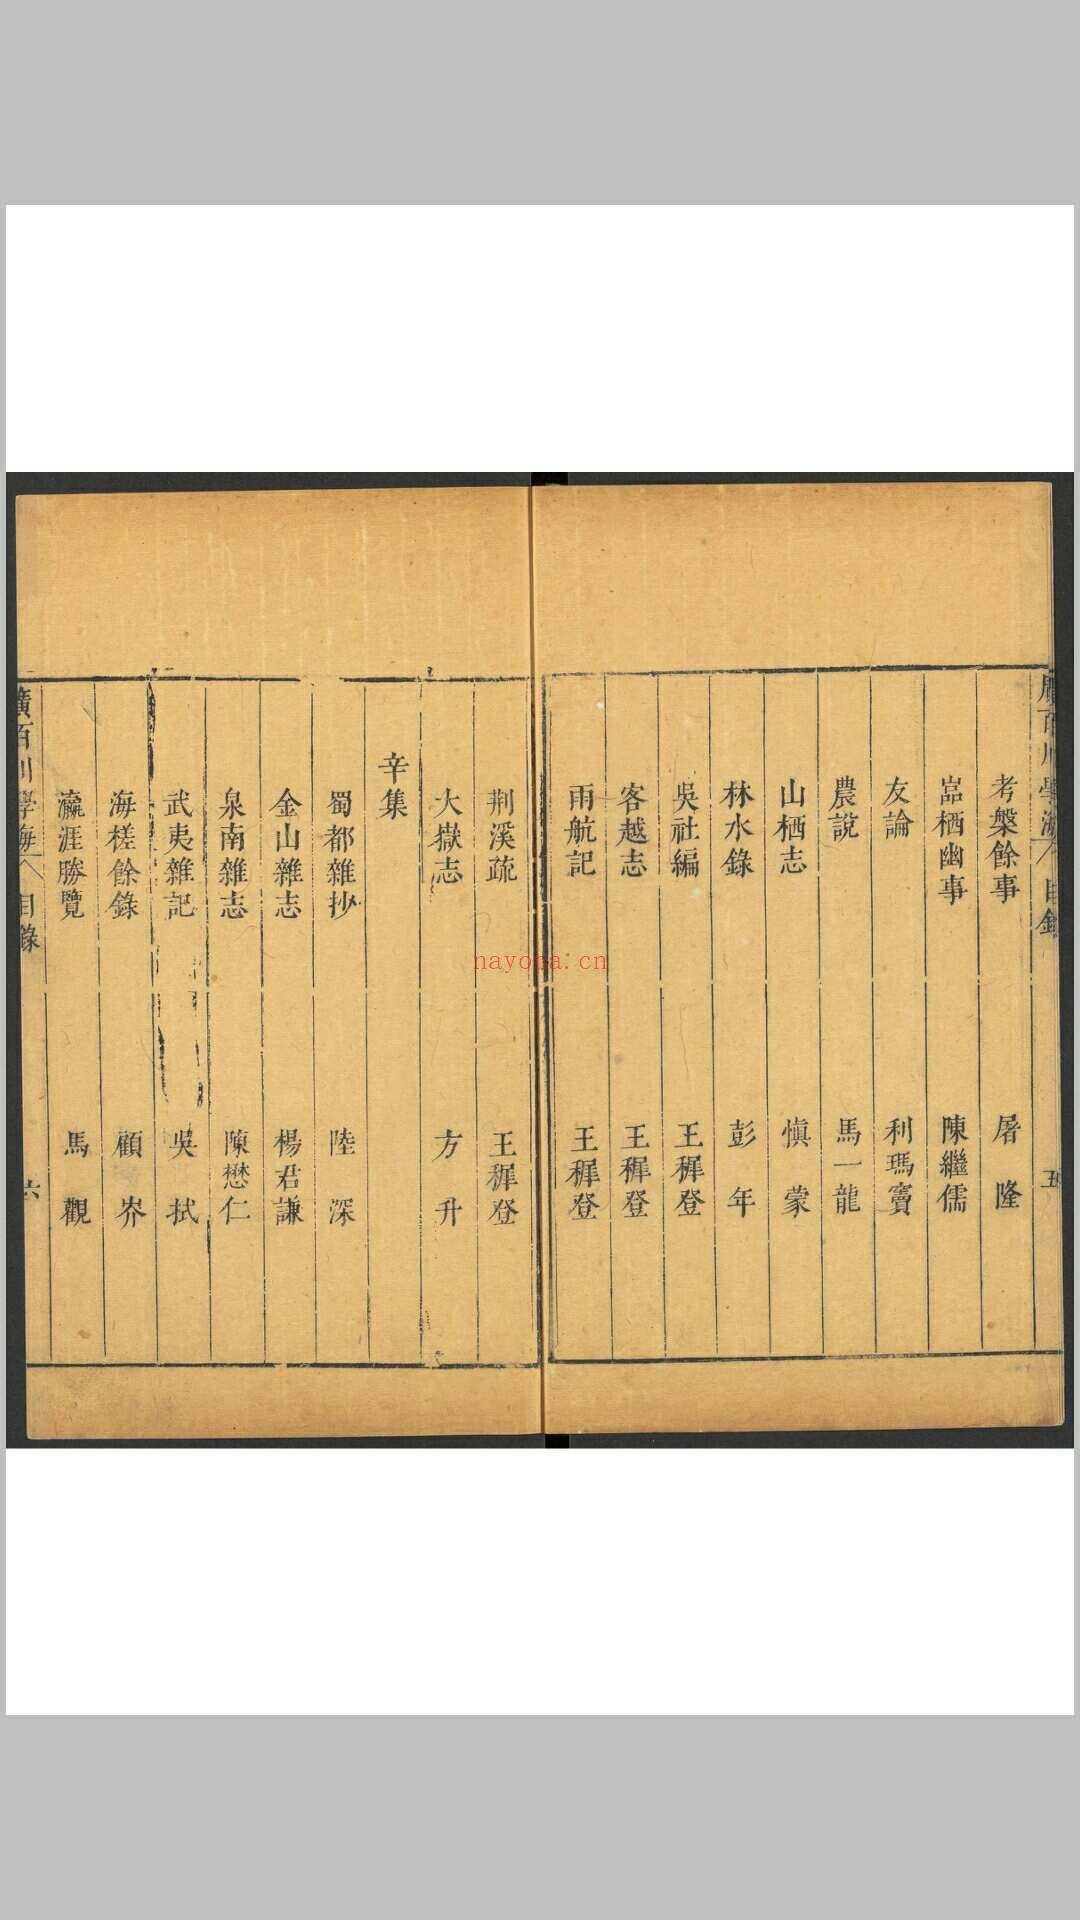 廣百川學海 目錄 五
考槃餘事 屠隆
嵓栖幽事 陳繼儒
友論 利瑪竇
農說 馬一龍
山栖志 愼蒙
林水錄 彭年
吳社編 王穉登
客越志 王穉登
雨航記 王穉登
荆溪疏 王穉登
大嶽志 方升
辛集
蜀都雜抄 陸深
金山雜志 楊君謙
泉南雜志 陳懋仁
武夷雜記 吳拭
海槎餘錄 顧岕
瀛涯勝覽 馬觀
廣百川學海 目錄 六
nayona.cn